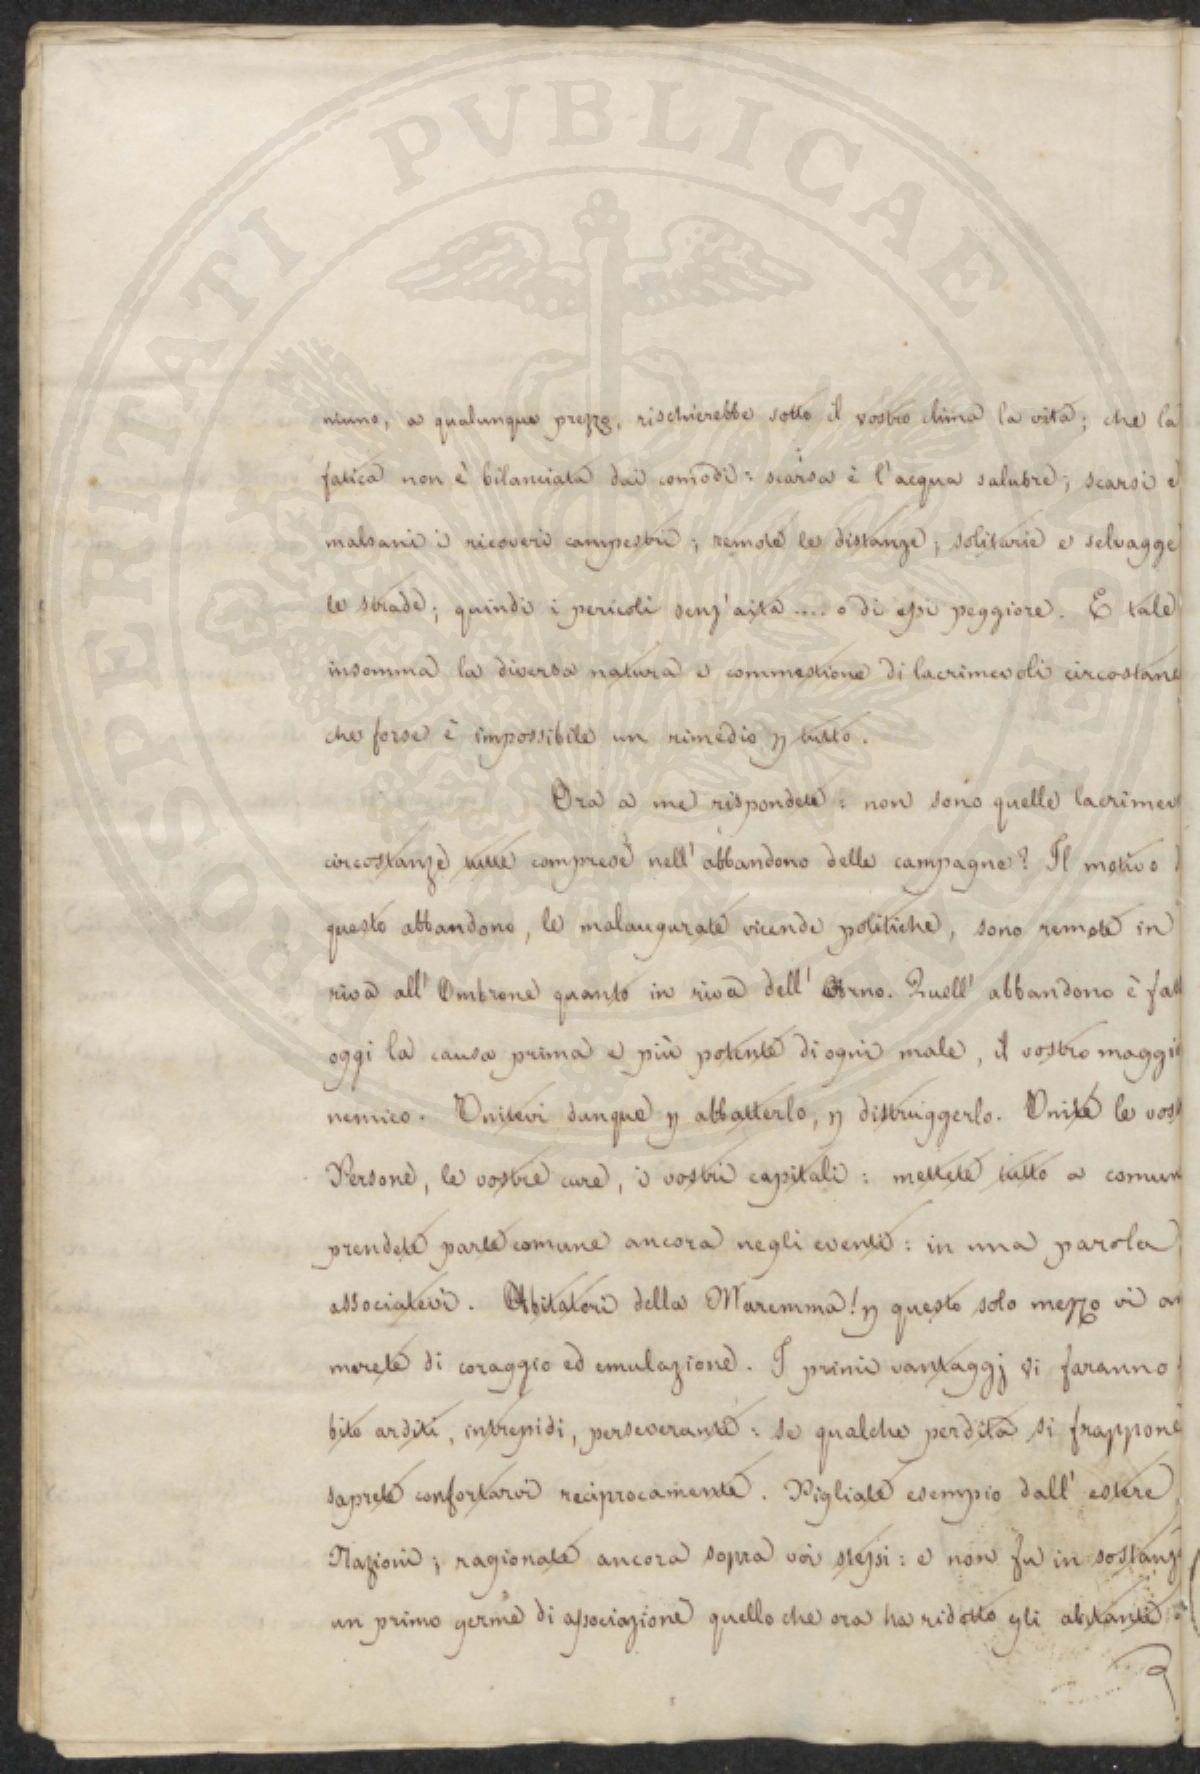 PROSPERITATI PVBLICAE
niuno, a qualunque prezzo, rischierebbe sotto il vostro clima la vita; che la
fatica non è bilanciata dai comodi: scarsa è l'acqua salubre; scarsi e
malsani i ricoveri campestri; remote le distanze; solitarie e selvagge
le strade; quindi i pericoli senz'aita .... o di essi peggiore. E tale
insomma la diversa natura e commestione di lacrimevoli circostanz
che forse è impossibile un rimedio p tutto.
Ora a me rispondete: non sono quelle lacrimev
circostanze tutte comprese nell'abbandono delle campagne? Il motivo d
questo abbandono, le malaugurate vicende politiche, sono remote in
riva all'Ombrone quanto in riva dell'Arno. Quell'abbandono è fatt
oggi la causa prima e più potente di ogni male, il vostro maggio
nemico. Unitevi dunque p abbatterlo, p distruggerlo. Unite le vos
Persone, le vostre cure, i vostri capitali: mettete tutto a comun
prendete parte comune ancora negli eventi: in una parola
associatevi. Abitatori della Maremma! p questo solo mezzo vi an
merete di coraggio ed emulazione. I primi vantaggj vi faranno
bito arditi, intrepidi, perseveranti: se qualche perdita si frappone
saprete confortarvi reciprocamente. Pigliate esempio dall'estere
Nazioni; ragionate ancora sopra voi stessi: e non fu in sostanz
un primo germe di associazione quello che ora ha ridotto gli abitanti